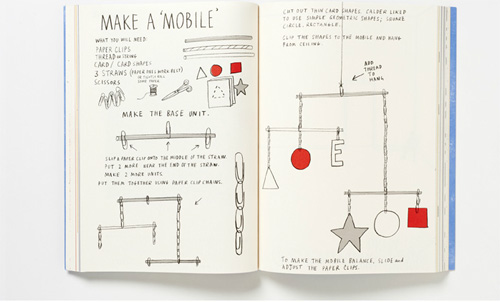 MAKE A 'MOBILE'
WHAT YOU WILL NEED
PAPER CLIPS
THREAD OR STRING
CARD / CARD SHAPES
3 STRAWS (PAPER ONES WORK BEST)
SCISSORS
MAKE THE BASE UNIT.
SLIP A PAPER CLIP ONTO THE MIDDLE OF THE STRAW.
PUT 2 MORE NEAR THE END OF THE STRAW.
MAKE 2 MORE UNITS
PUT THEM TOGETHER USING PAPER CLIP CHAINS.
CUT OUT YOUR CARD SHAPES. CALDER LIKED
TO USE SIMPLE GEOMETRIC SHAPES; SQUARE
CIRCLE, RECTANGLE..
CLIP THE SHAPES TO THE MOBILE AND HANG
FROM CEILING.
ADD
THREAD
TO
HANG
E
TO MAKE THE MOBILE BALANCE, SLIDE and
ADJUST THE PAPER CLIPS.